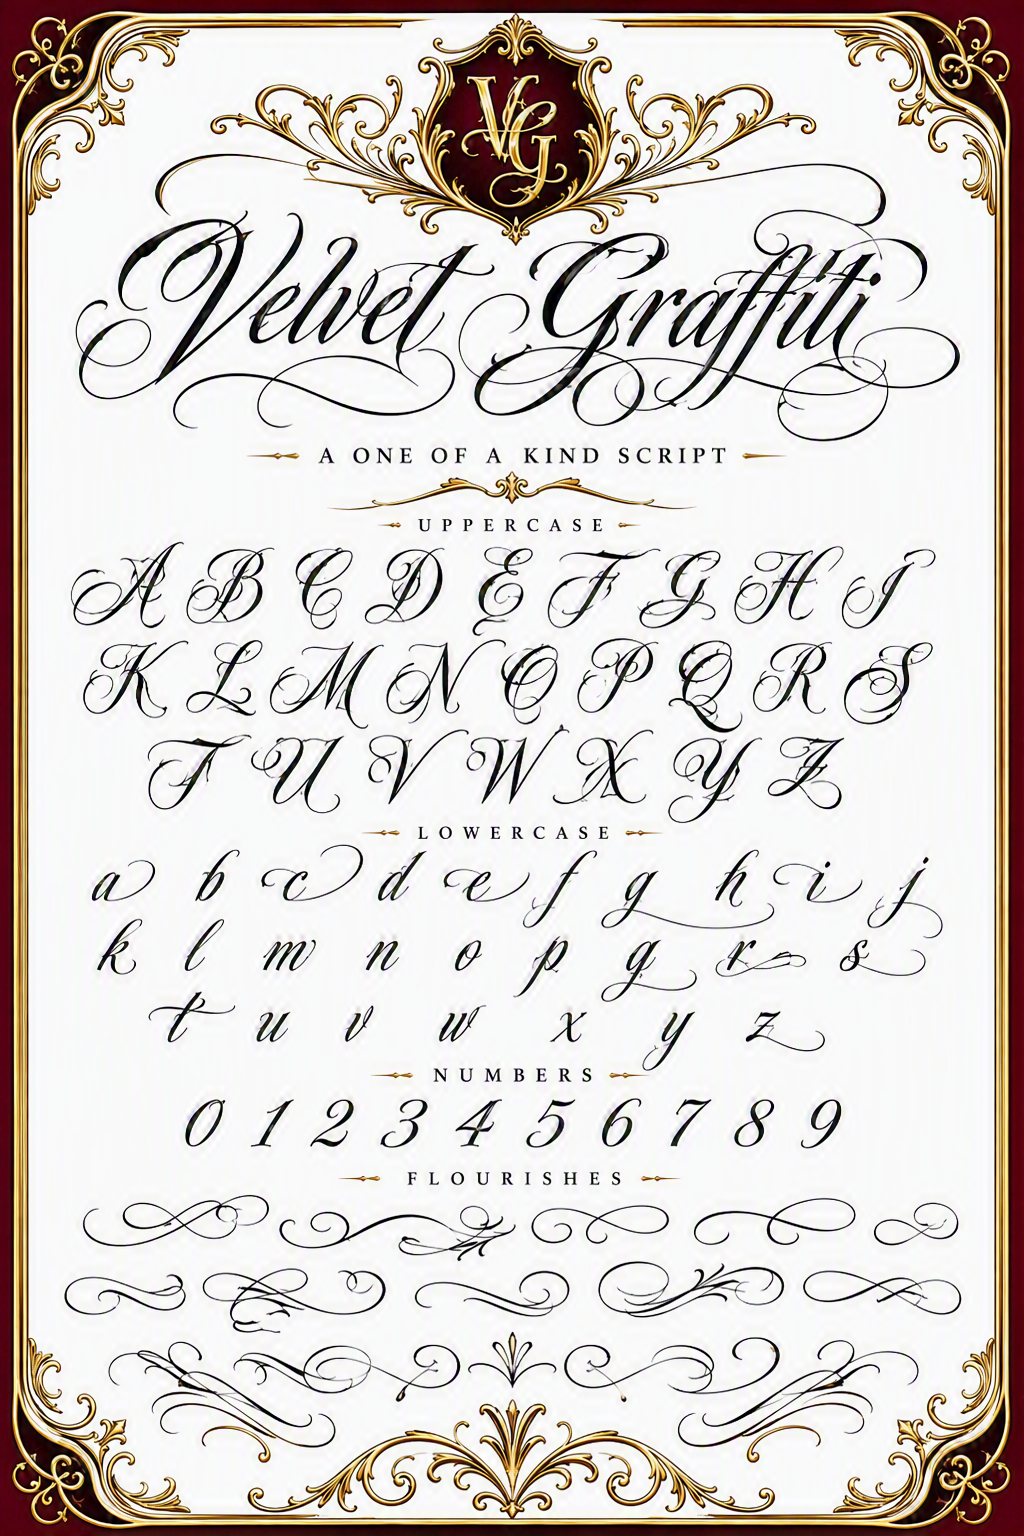 VG
Velvet Graffiti
A ONE OF A KIND SCRIPT
UPPERCASE
A B C D E F G H I
K L M N O P Q R S
T U V W X Y Z
LOWERCASE
a b c d e f g h i j
k l m n o p g r s
t u v w x y z
NUMBERS
0 1 2 3 4 5 6 7 8 9
FLOURISHES